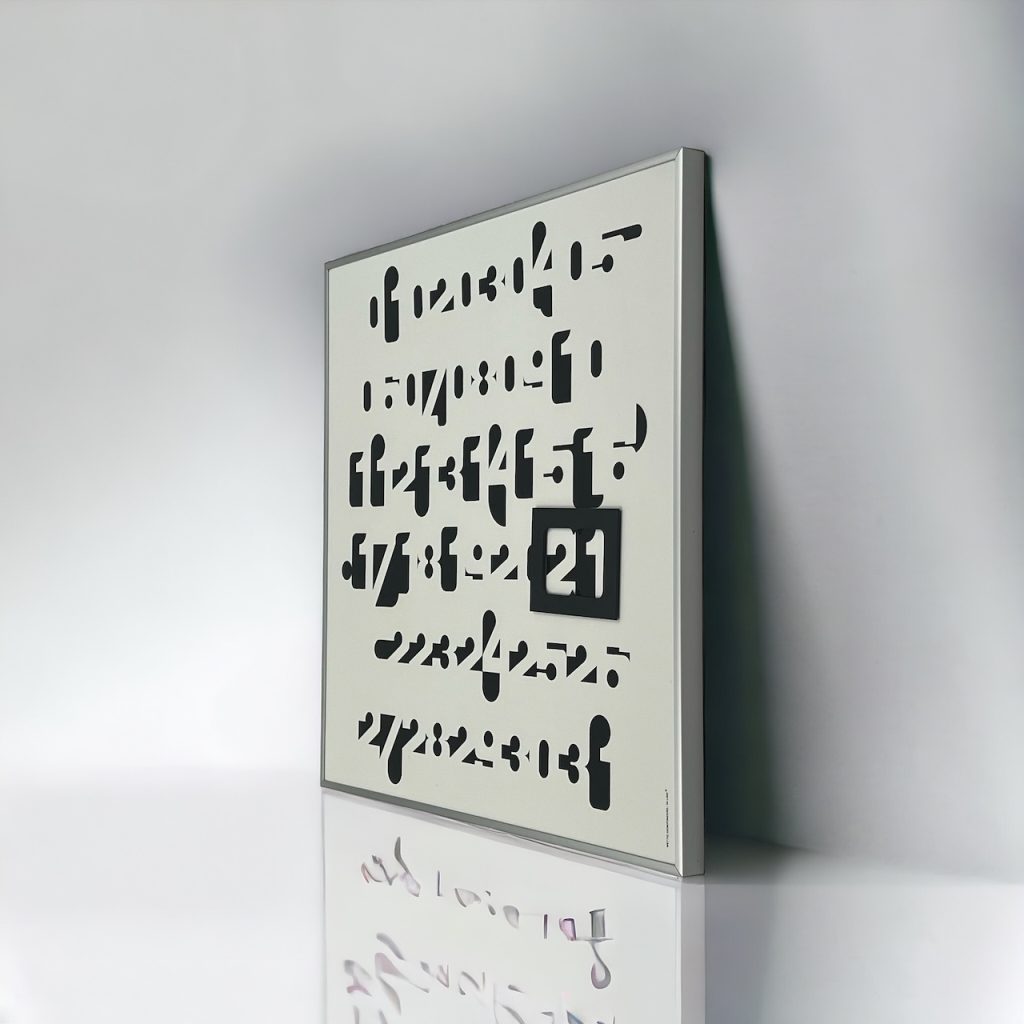 01 02 03 04 05
06 07 08 09 10
11 12 13 14 15 16
17 18 19 20 21
22 23 24 25 26
27 28 29 30 31